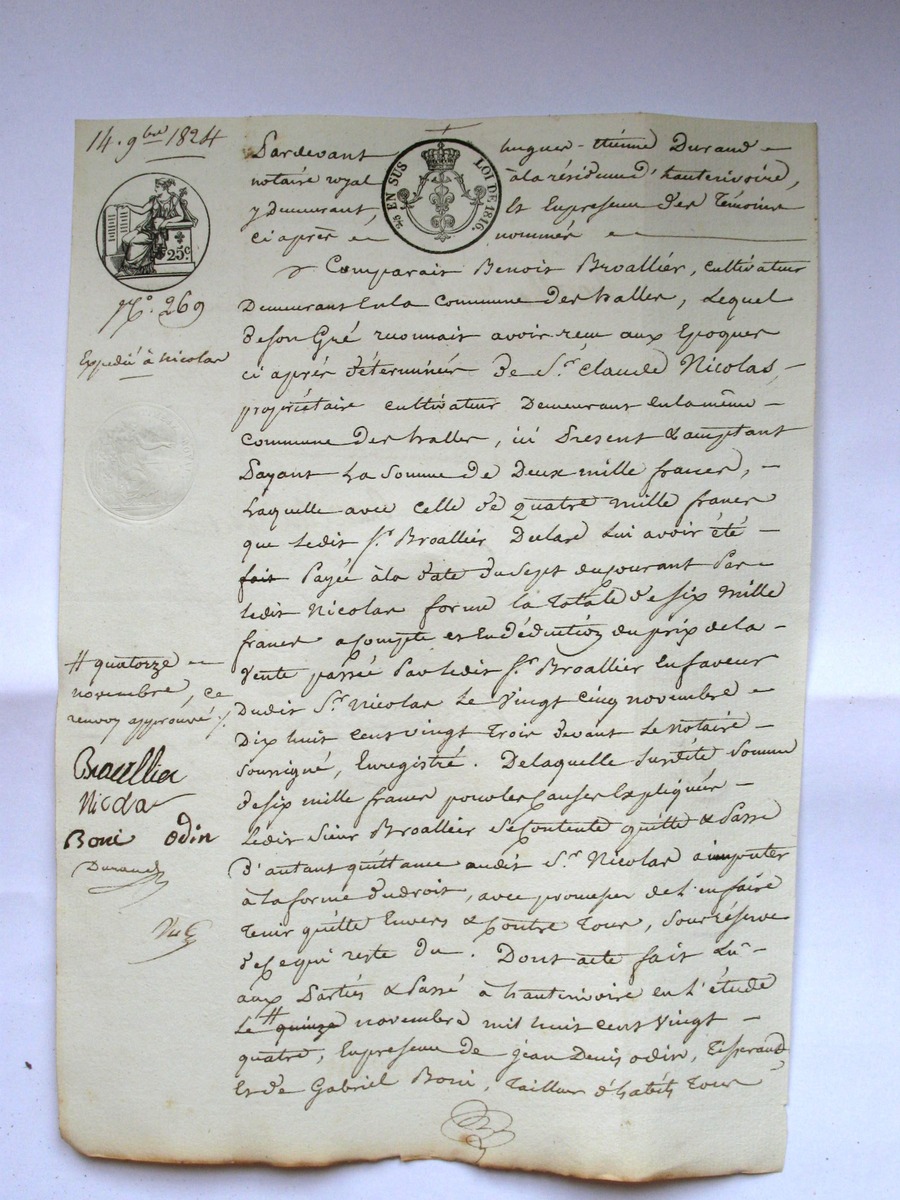 14. 9bre 1824
25c
N°. 269
Expedié à Nicolas
Pardevant hugues-étiènne Durand
notaire royal à la résidence d'hauterivoire,
y demeurant, Et En presence des Témoins
ci après nommés
EN SUS LOI DE 1816.
Comparait Benoit Broallier, cultivateur
Demeurant En la Commune des halles, Lequel
de son Gré reconnait avoir reçu aux Epoques
ci après déterminées De Sr. Claude Nicolas,
propriétaire cultivateur Demeurant En la même
Commune des halles, ici Present & acceptant
Payant La Somme de Deux mille francs,
Laquelle avec celle de quatre mille francs
que Ledit Sr. Broallier Declare Lui avoir été
fait Payée à la date du Sept du Courant Par
Ledit Nicolas forme la Totale de Six mille
francs acompte et En déduction du prix de la
Vente passée Par Ledit Sr. Broallier En faveur
Dudit Sr. Nicolas Le Vingt Cinq novembre
Dix huit Cent Vingt Trois devant Le notaire
Soussigné, Enregistré. De laquelle Susdite Somme
de Six mille francs pour les Causes Expliquées
Ledit Sieur Broallier Se Contente quitte & Passe
d'autant quittance audit Sr. Nicolas à imputer
à la forme du droit, avec promesse de l'en faire
Tenir quitte Envers & Contre Tous, Sous réserve
de Ce qui reste du. Dont acte fait Lû
aux Parties & Passé à hauterivoire en l'étude
Le # quinze novembre mil huit Cent Vingt
quatre, En presence de jean Denis odin, Tisserand,
Et de Gabriel Boni, Tailleur d'habits Tous
# quatorze
novembre, ce
renvoy approuvé
Broallier
Nicolas
Boni odin
Durand